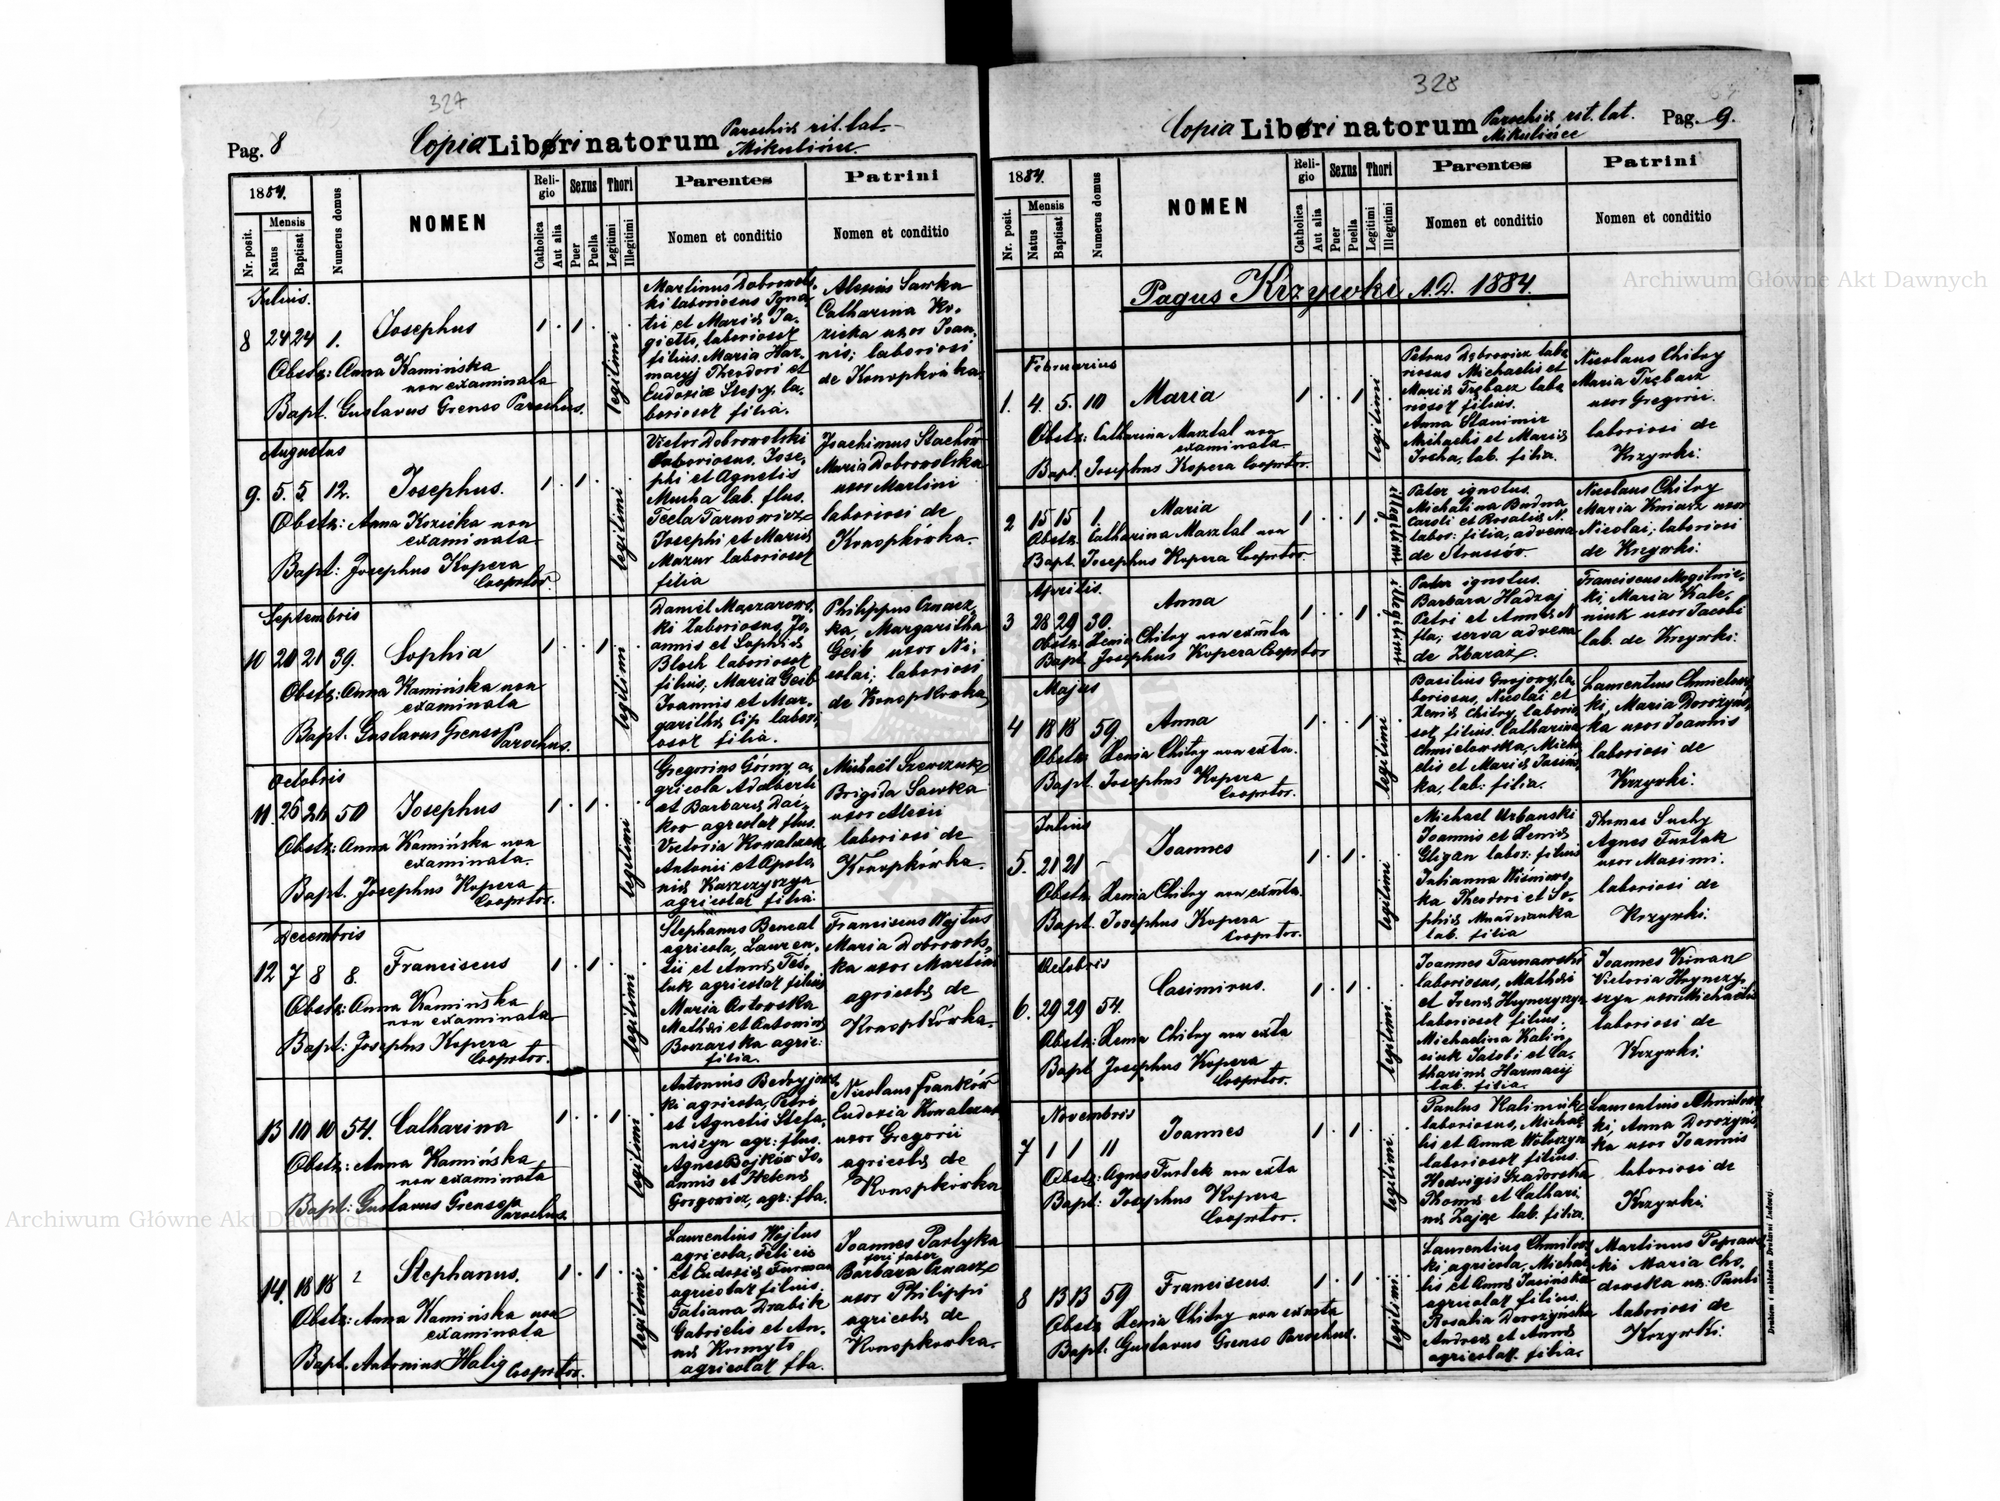 327
Pag. 8
Copia Libri natorum Parochiæ rit. lat.
Mikulińce.
1884.
Nr. posit.
Mensis
Natus
Baptisat
Numerus domus
NOMEN
Religio
Catholica
Aut alia
Sexus
Puer
Puella
Thori
Legitimi
Illegitimi
Parentes
Nomen et conditio
Patrini
Nomen et conditio
Julius.
8 24 24 1. Josephus 1 1
Obstz: Anna Kamińska
non examinata
Bapt. Gustavus Grenso Parochus.
legitimi
Martinus Dobrowols-
ki laboriosus Igna-
tii et Mariæ Ja-
giełło, laboriosor
filius. Maria Har-
macyj Theodori et
Eudoxiæ Stepy, la-
boriosor filia.
Alexius Sawka
Catharina Ko-
zicka uxor Joan-
nis; laboriosi
de Konopkówka.
Augustus
9. 5. 5. 12. Josephus. 1 1
Obstz: Anna Kozicka non
examinata
Bapt: Josephus Kopera
Cooprtor.
legitimi
Victor Dobrowolski
laboriosus, Jose-
phi et Agnetis
Mucha lab. flus.
Tecla Tarnowicz
Josephi et Mariæ
Mazur laboriosor
filia
Joachimus Stachów
Maria Dobrowolska
uxor Martini
laboriosi de
Konopkówka.
Septembris
10 20 21 39. Sophia 1 1
Obstz: Anna Kamińska non
examinata
Bapt. Gustavus Grenso Parochus.
legitimi
Daniel Maczarows-
ki laboriosus, Jo-
annis et Sophiæ
Bloch laboriosor
filius; Maria Geib
Joannis et Mar-
garithæ Cip labori-
osor filia.
Philippus Oznacz
ka, Margaritha
Geib uxor Ni-
colai; laboriosi
de Konopkówka
Octobris
11. 26 26 50 Josephus 1 1
Obstz: Anna Kamińska non
examinata.
Bapt. Josephus Kopera
Cooprtor.
legitimi
Gregorius Górny, a-
gricola Adalberti
et Barbaræ Dai-
kow agricolar flus.
Victoria Kowalczuk
Antonii et Apolo-
niæ Kaszczyszyn
agricolar filia
Michaël Szewczuk
Brigida Sawka
uxor Alexii
laboriosi de
Konopkówka.
Decembris
12 7 8 8. Franciscus 1 1
Obstz: Anna Kamińska
non examinata
Bapt: Josephus Kopera
Cooprtor.
legitimi
Stephanus Bencal
agricola, Lauren-
tii et Annæ Tes-
luk agricolar filius
Maria Orłowska
Mathæi et Antoninæ
Boczarska agric:
filia.
Franciscus Wojtus
Maria Dobrowols-
ka uxor Martini
agricolæ de
Konopkówka.
13 10 10 54. Catharina 1 1
Obstz: Anna Kamińska
non examinata
Bapt: Gustavus Grenso
Parochus.
legitimi
Antonius Bedryjows
ki agricola, Petri
et Agnetis Stefa-
niszyn agr: flus.
Agnes Bojków Jo-
annis et Helenæ
Gorgowicz, agr: fla.
Nicolaus Franków
Eudoxia Kowalczuk
uxor Gregorii
agricolæ de
Konopkówka
14. 18 18 2 Stephanus. 1 1
Obstz: Anna Kamińska non
examinata
Bapt. Antonius Halig Cooprtor.
legitimi
Laurentius Wojtus
agricola, Felicis
et Eudoxiæ Furman
agricolar filius.
Tatiana Drabik
Gabrielis et An-
næ Kormyto
agricolar fla.
Joannes Partyka
Barbara Oznacz
uxor Philippi
agricolæ de
Konopkówka.
328
Copia Libri natorum Parochiæ rit. lat.
Mikulińce
Pag. 9.
1884.
Nr. posit.
Mensis
Natus
Baptisat
Numerus domus
NOMEN
Religio
Catholica
Aut alia
Sexus
Puer
Puella
Thori
Legitimi
Illegitimi
Parentes
Nomen et conditio
Patrini
Nomen et conditio
Pagus Krzywki A.D. 1884.
Februarius
1. 4. 5. 10 Maria 1 1
Obstz: Catharina Masztal non
examinata
Bapt. Josephus Kopera Cooprtor.
legitimi
Petrus Dąbrowicz labo
riosus Michaelis et
Mariæ Trębacz labo
riosor filius.
Anna Stanimir
Michaelis et Mariæ
Jocha, lab. filia.
Nicolaus Chitry
Maria Trębacz
uxor Gregorii.
laboriosi de
Krzywki.
2 15 15 1. Maria 1 1
Obstz: Catharina Masztal non
Bapt. Josephus Kopera Cooprtor.
illegitimi
Pater ignotus.
Michalina Budna
Caroli et Rosaliæ N.
labor: filia, advena
de Strussów.
Nicolaus Chitry
Maria Kniasz uxor
Nicolai; laboriosi
de Krzywki.
Aprilis.
3 28 29 30. Anna 1 1
Obstz: Xenia Chitry non exmta
Bapt. Josephus Kopera Cooprtor
illegitimi
Pater ignotus.
Barbara Hadzaj
Petri et Annæ N
fla; serva advena
de Zbaraż.
Franciscus Mogilnic-
ki Maria Kale-
niuk uxor Jacobi
lab. de Krzywki:
Majus
4 18 18 59. Anna 1 1
Obstz: Xenia Chitry non exta.
Bapt. Josephus Kopera
Cooprtor.
legitimi
Basilius Gnojowy, la-
boriosus, Nicolai et
Xeniæ Chitry, laborio
sor filius. Catharina
Chmielowska, Micha
elis et Mariæ Jasins
ka, lab: filia.
Laurentius Chmielows
ki, Maria Dorożyńs
ka uxor Joannis
laboriosi de
Krzywki:
Julius
5. 21 21 – Joannes 1 1
Obstz: Xenia Chitry non exmta.
Bapt. Josephus Kopera
Cooprtor.
legitimi
Michael Urbanski
Joannis et Xeniæ
Gligan labor: filius
Julianna Wiśniows-
ka Theodori et So-
phiæ Mnadzianka
lab. filia
Thomas Suchy
Agnes Furtak
uxor Maximi.
laboriosi de
Krzywki.
Octobris
6. 29 29 54. Casimirus. 1 1
Obstz: Xenia Chitry non exta
Bapt Josephus Kopera
Cooprtor.
legitimi.
Joannes Tarnawski
laboriosus, Mathæi
et Irenæ Hryniczyn
laboriosor filius,
Michaelina Kalin-
ciuk Jacobi et Ca-
tharinæ Harmacij
lab. filia.
Joannes Kinasz
Victoria Hrynczy-
szyn uxor Michaelis
laboriosi de
Krzywki.
Novembris
7 1 1 11 Joannes 1 1
Obstz: Agnes Furtek non exta
Bapt: Josephus Kopera
Cooprtor.
legitimi.
Paulus Kaliniuk
laboriosus, Michae
lis et Annæ Wołoszyn
laboriosor filius.
Hedvigis Szadorska
Thomæ et Cathari
næ Zając lab. filia.
Laurentius Chmielows
ki, Anna Dorożyńs
ka uxor Joannis
laboriosi de
Krzywki.
8 13 13 59 Franciscus. 1 1
Obstz Xenia Chitry non exmta
Bapt: Gustavus Grenso Parochus.
legitimi.
Laurentius Chmielows
ki, agricola, Michae
lis et Annæ Jasińska
agricolar filius.
Rosalia Dorożyńska
Andreæ et Annæ
agricolar. filia.
Martinus Popraws
ki Maria Cho-
dorska ux: Pauli
laboriosi de
Krzywki.
Drukiem i nakładem Drukarni Ludowej.
Archiwum Główne Akt Dawnych
Archiwum Główne Akt Dawnych